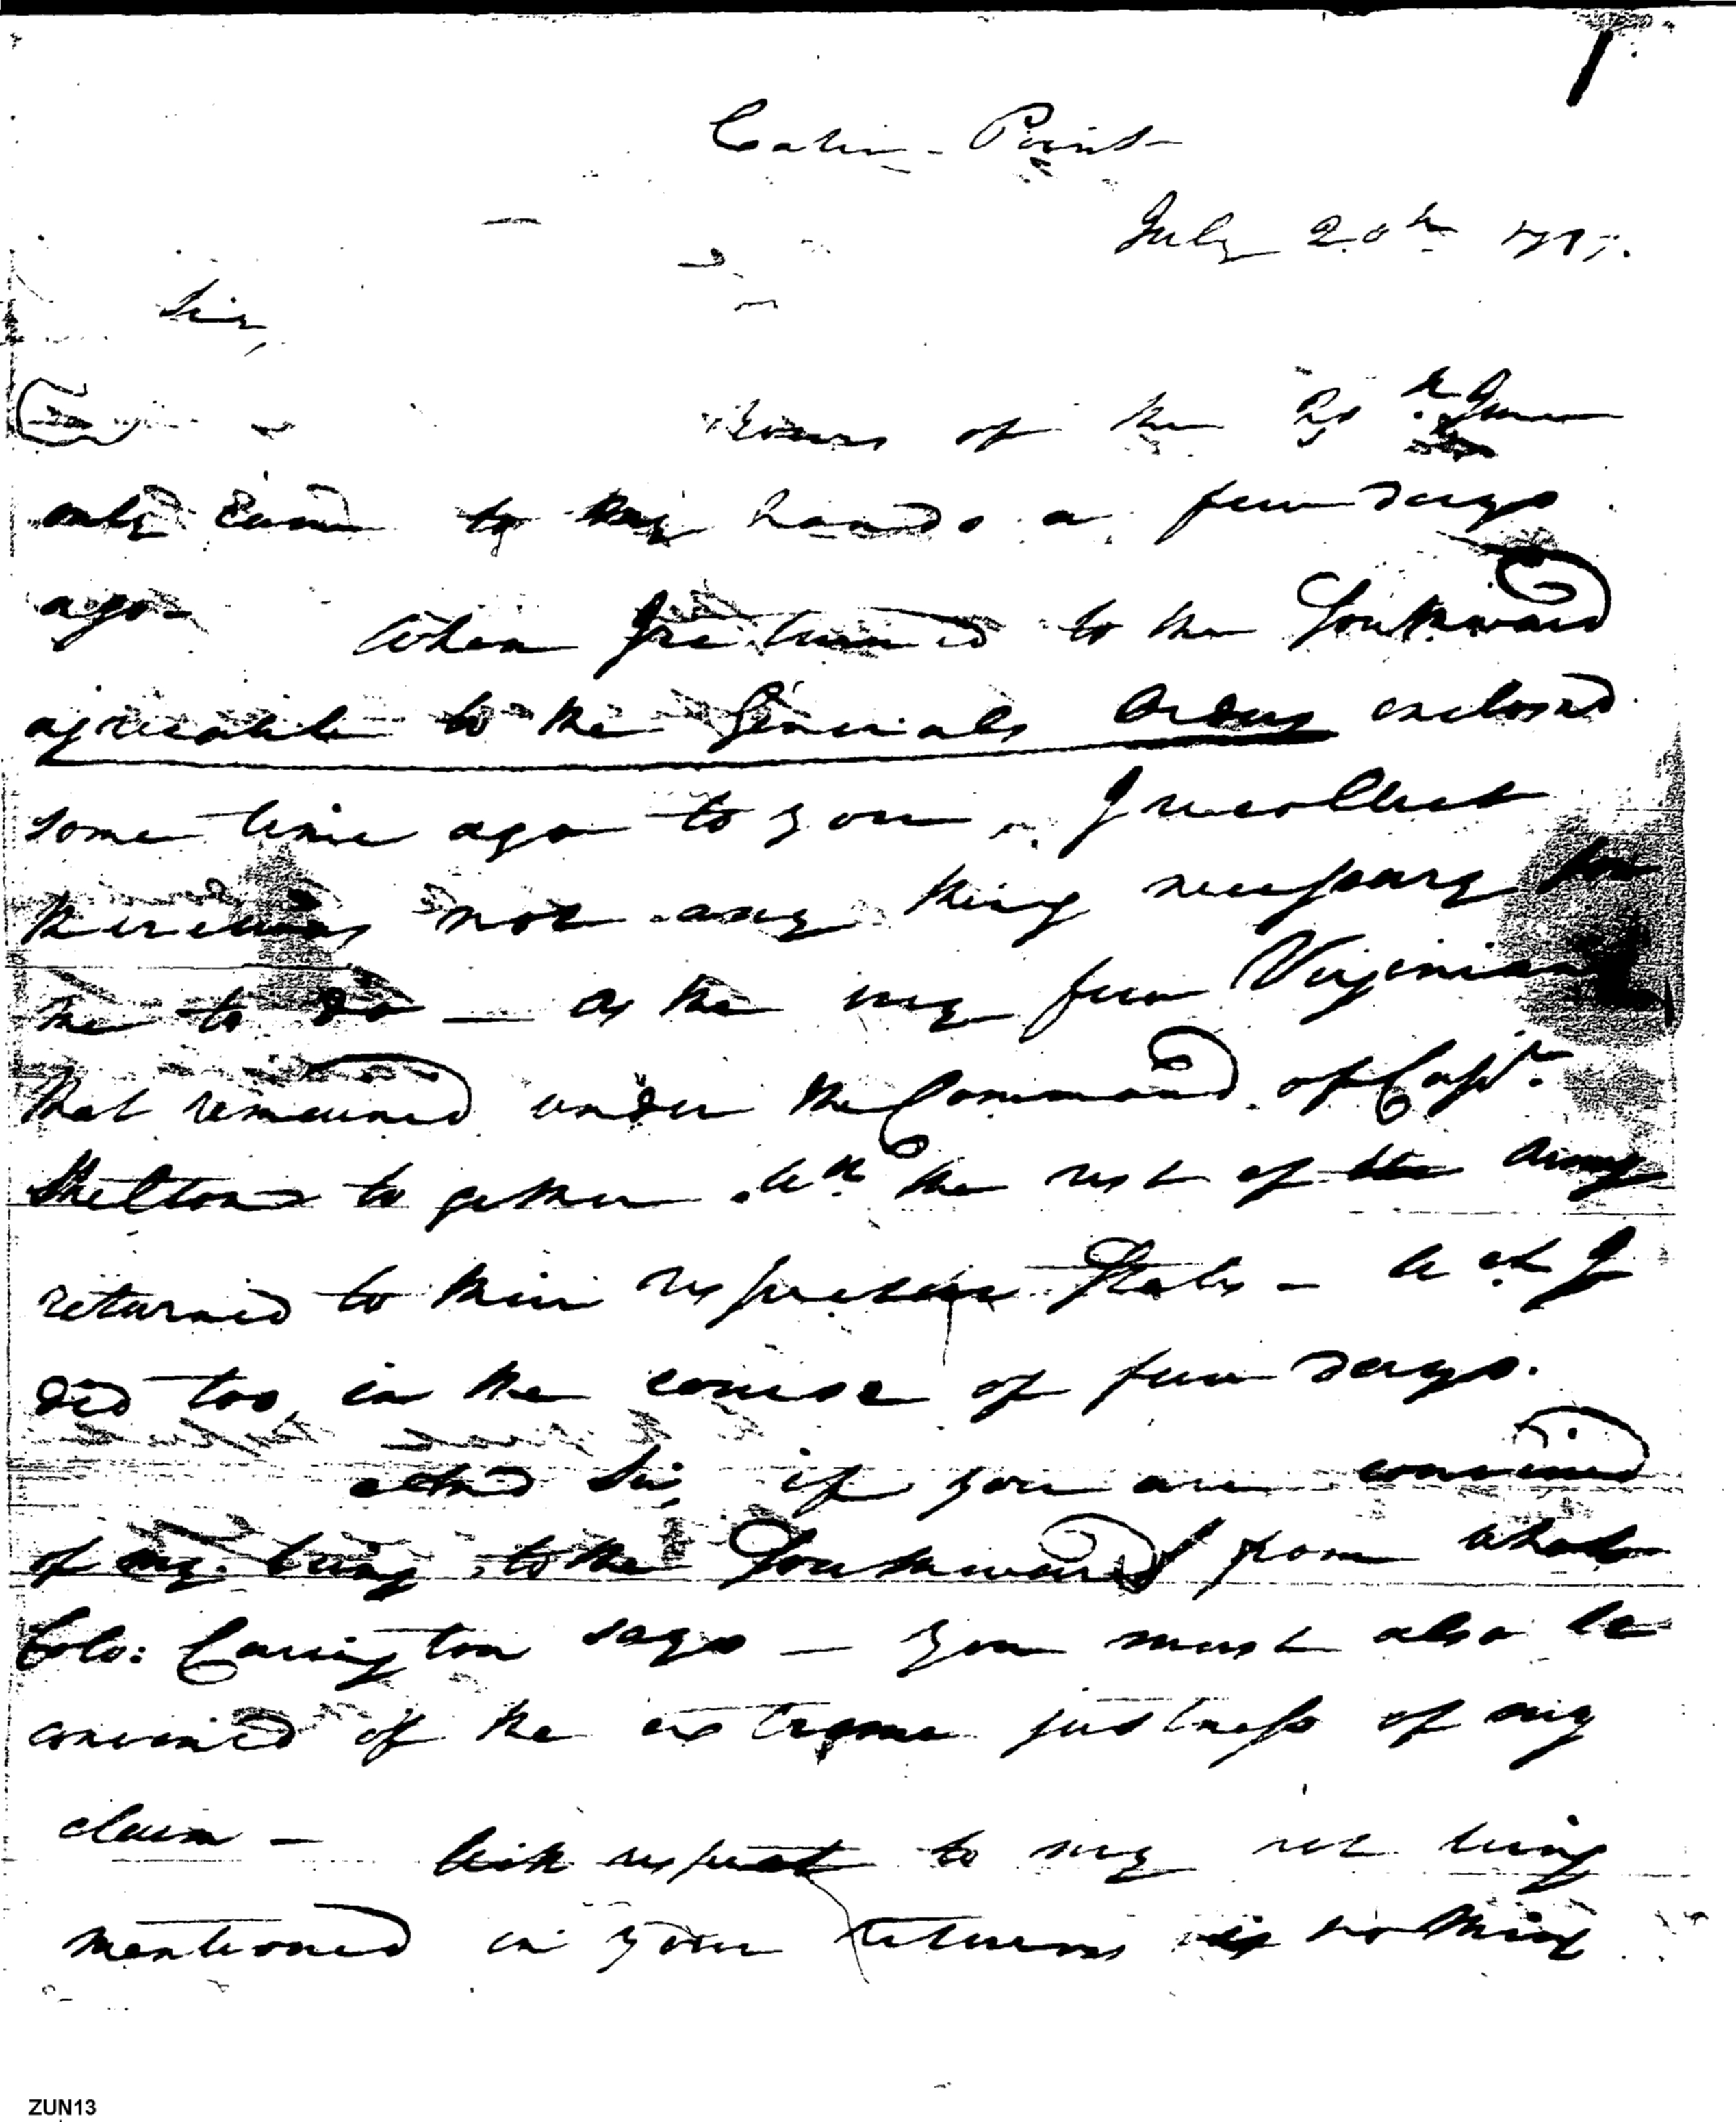 Cabin-Point
July 20th 178
Sir,
Yours of the 25th June
only came to my hands a few days
ago. When I returned to the Southward
agreeable to the Generals Orders enclosed
some time ago to you, I recollect
there was not any thing necessary for
me to do — as the very few Virginians
that remained under the Command of Capt.
Skelton to gether wth the rest of the Army
returned to their respective States — wch I
did too, in the course of few days.
And Sir, if you are convinced
of my being to the Southward from what
Colo: Carington says — you must also be
convinced of the extreme justness of my
claim — With respect to my not being
mentioned in your returns is nothing
ZUN13